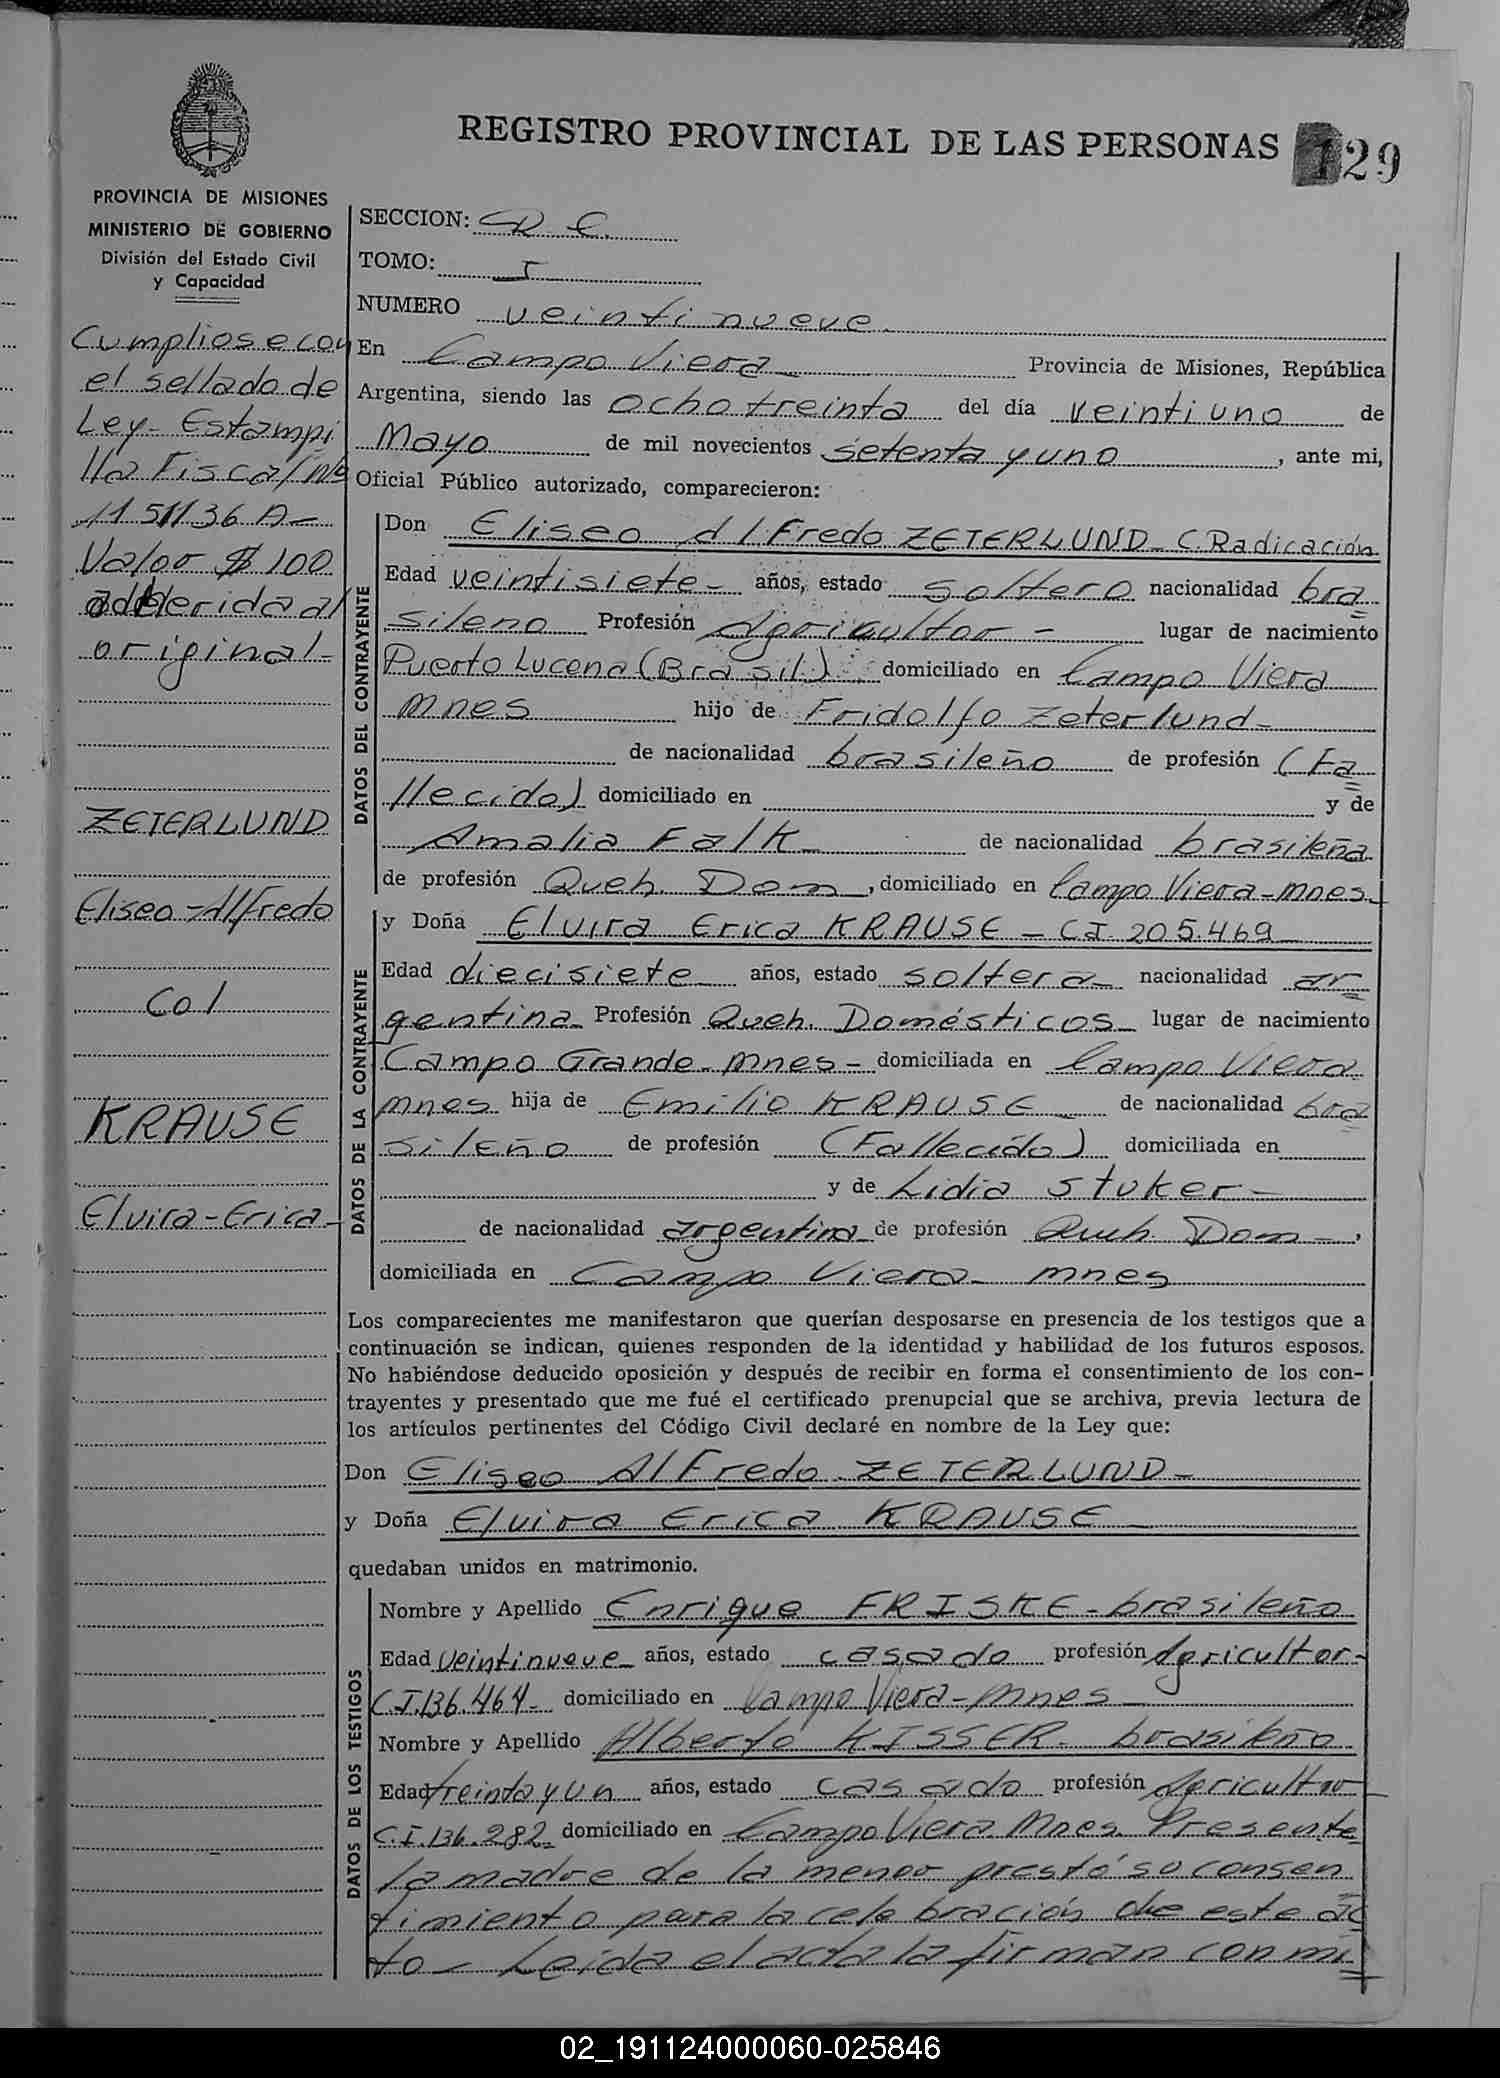 REGISTRO PROVINCIAL DE LAS PERSONAS 129
PROVINCIA DE MISIONES
MINISTERIO DE GOBIERNO
División del Estado Civil
y Capacidad
Cumpliose con
el sellado de
Ley- Estampi
lla Fiscal Nº
1151136 A-
Valor $ 100
adherida al
original-
ZETERLUND
Eliseo-Alfredo
Col
KRAUSE
Elvira-Erica-
SECCION: R. C.
TOMO: I
NUMERO veintinueve
En Campo Viera Provincia de Misiones, República
Argentina, siendo las ocho treinta del día veintiuno de
Mayo de mil novecientos setenta y uno, ante mi,
Oficial Público autorizado, comparecieron:
DATOS DEL CONTRAYENTE
Don Eliseo Alfredo ZETERLUND- C. Radicación
Edad veintisiete- años, estado soltero nacionalidad bra
sileno Profesión Agricultor- lugar de nacimiento
Puerto Lucena (Brasil) domiciliado en Campo Viera
Mnes hijo de Fridolfo Zeterlund-
de nacionalidad brasileño de profesión (Fa
llecido) domiciliado en y de
Amalia Falk- de nacionalidad brasileña
de profesión Queh. Dom, domiciliado en Campo Viera-Mnes-
DATOS DE LA CONTRAYENTE
y Doña Elvira Erica KRAUSE - C.I. 205.469
Edad diecisiete- años, estado soltera- nacionalidad ar
gentina- Profesión Queh. Domésticos- lugar de nacimiento
Campo Grande-Mnes- domiciliada en Campo Viera
Mnes hija de Emilio KRAUSE - de nacionalidad bra
sileño de profesión (Fallecido) domiciliada en
y de Lidia Stuker-
de nacionalidad argentina de profesión Queh. Dom-,
domiciliada en Campo Viera- Mnes
Los comparecientes me manifestaron que querían desposarse en presencia de los testigos que a
continuación se indican, quienes responden de la identidad y habilidad de los futuros esposos.
No habiéndose deducido oposición y después de recibir en forma el consentimiento de los con-
trayentes y presentado que me fué el certificado prenupcial que se archiva, previa lectura de
los artículos pertinentes del Código Civil declaré en nombre de la Ley que:
Don Eliseo Alfredo ZETERLUND-
y Doña Elvira Erica KRAUSE-
quedaban unidos en matrimonio.
DATOS DE LOS TESTIGOS
Nombre y Apellido Enrique FRISKE-brasileño
Edad veintinueve- años, estado casado profesión Agricultor-
C.I.136.464- domiciliado en Campo Viera-Mnes-
Nombre y Apellido Alberto KISSER- brasileño
Edad treinta y un años, estado casado profesión Agricultor
C.I.136.282- domiciliado en Campo Viera Mnes. Presente
la madre de la menor prestó su consen
timiento para la celebración de este ac
to- Leida el acta la firman con mi
02_191124000060-025846